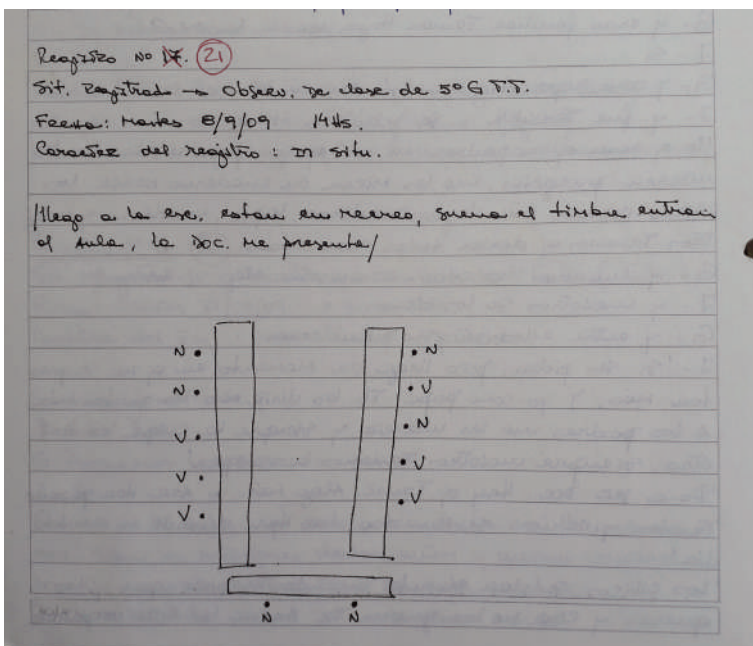 Registro No 17. 21
Sit. Registrada → Observ. de clase de 5º G T.T.
Fecha: Martes 8/9/09 14Hs.
Caracter del registro: in situ.
/llego a la esc. estan en recreo, suena el timbre entran
al aula, la Doc. me presenta/
N • • N
N • • V
V • • N
V • • V
V • • V
• •
N N